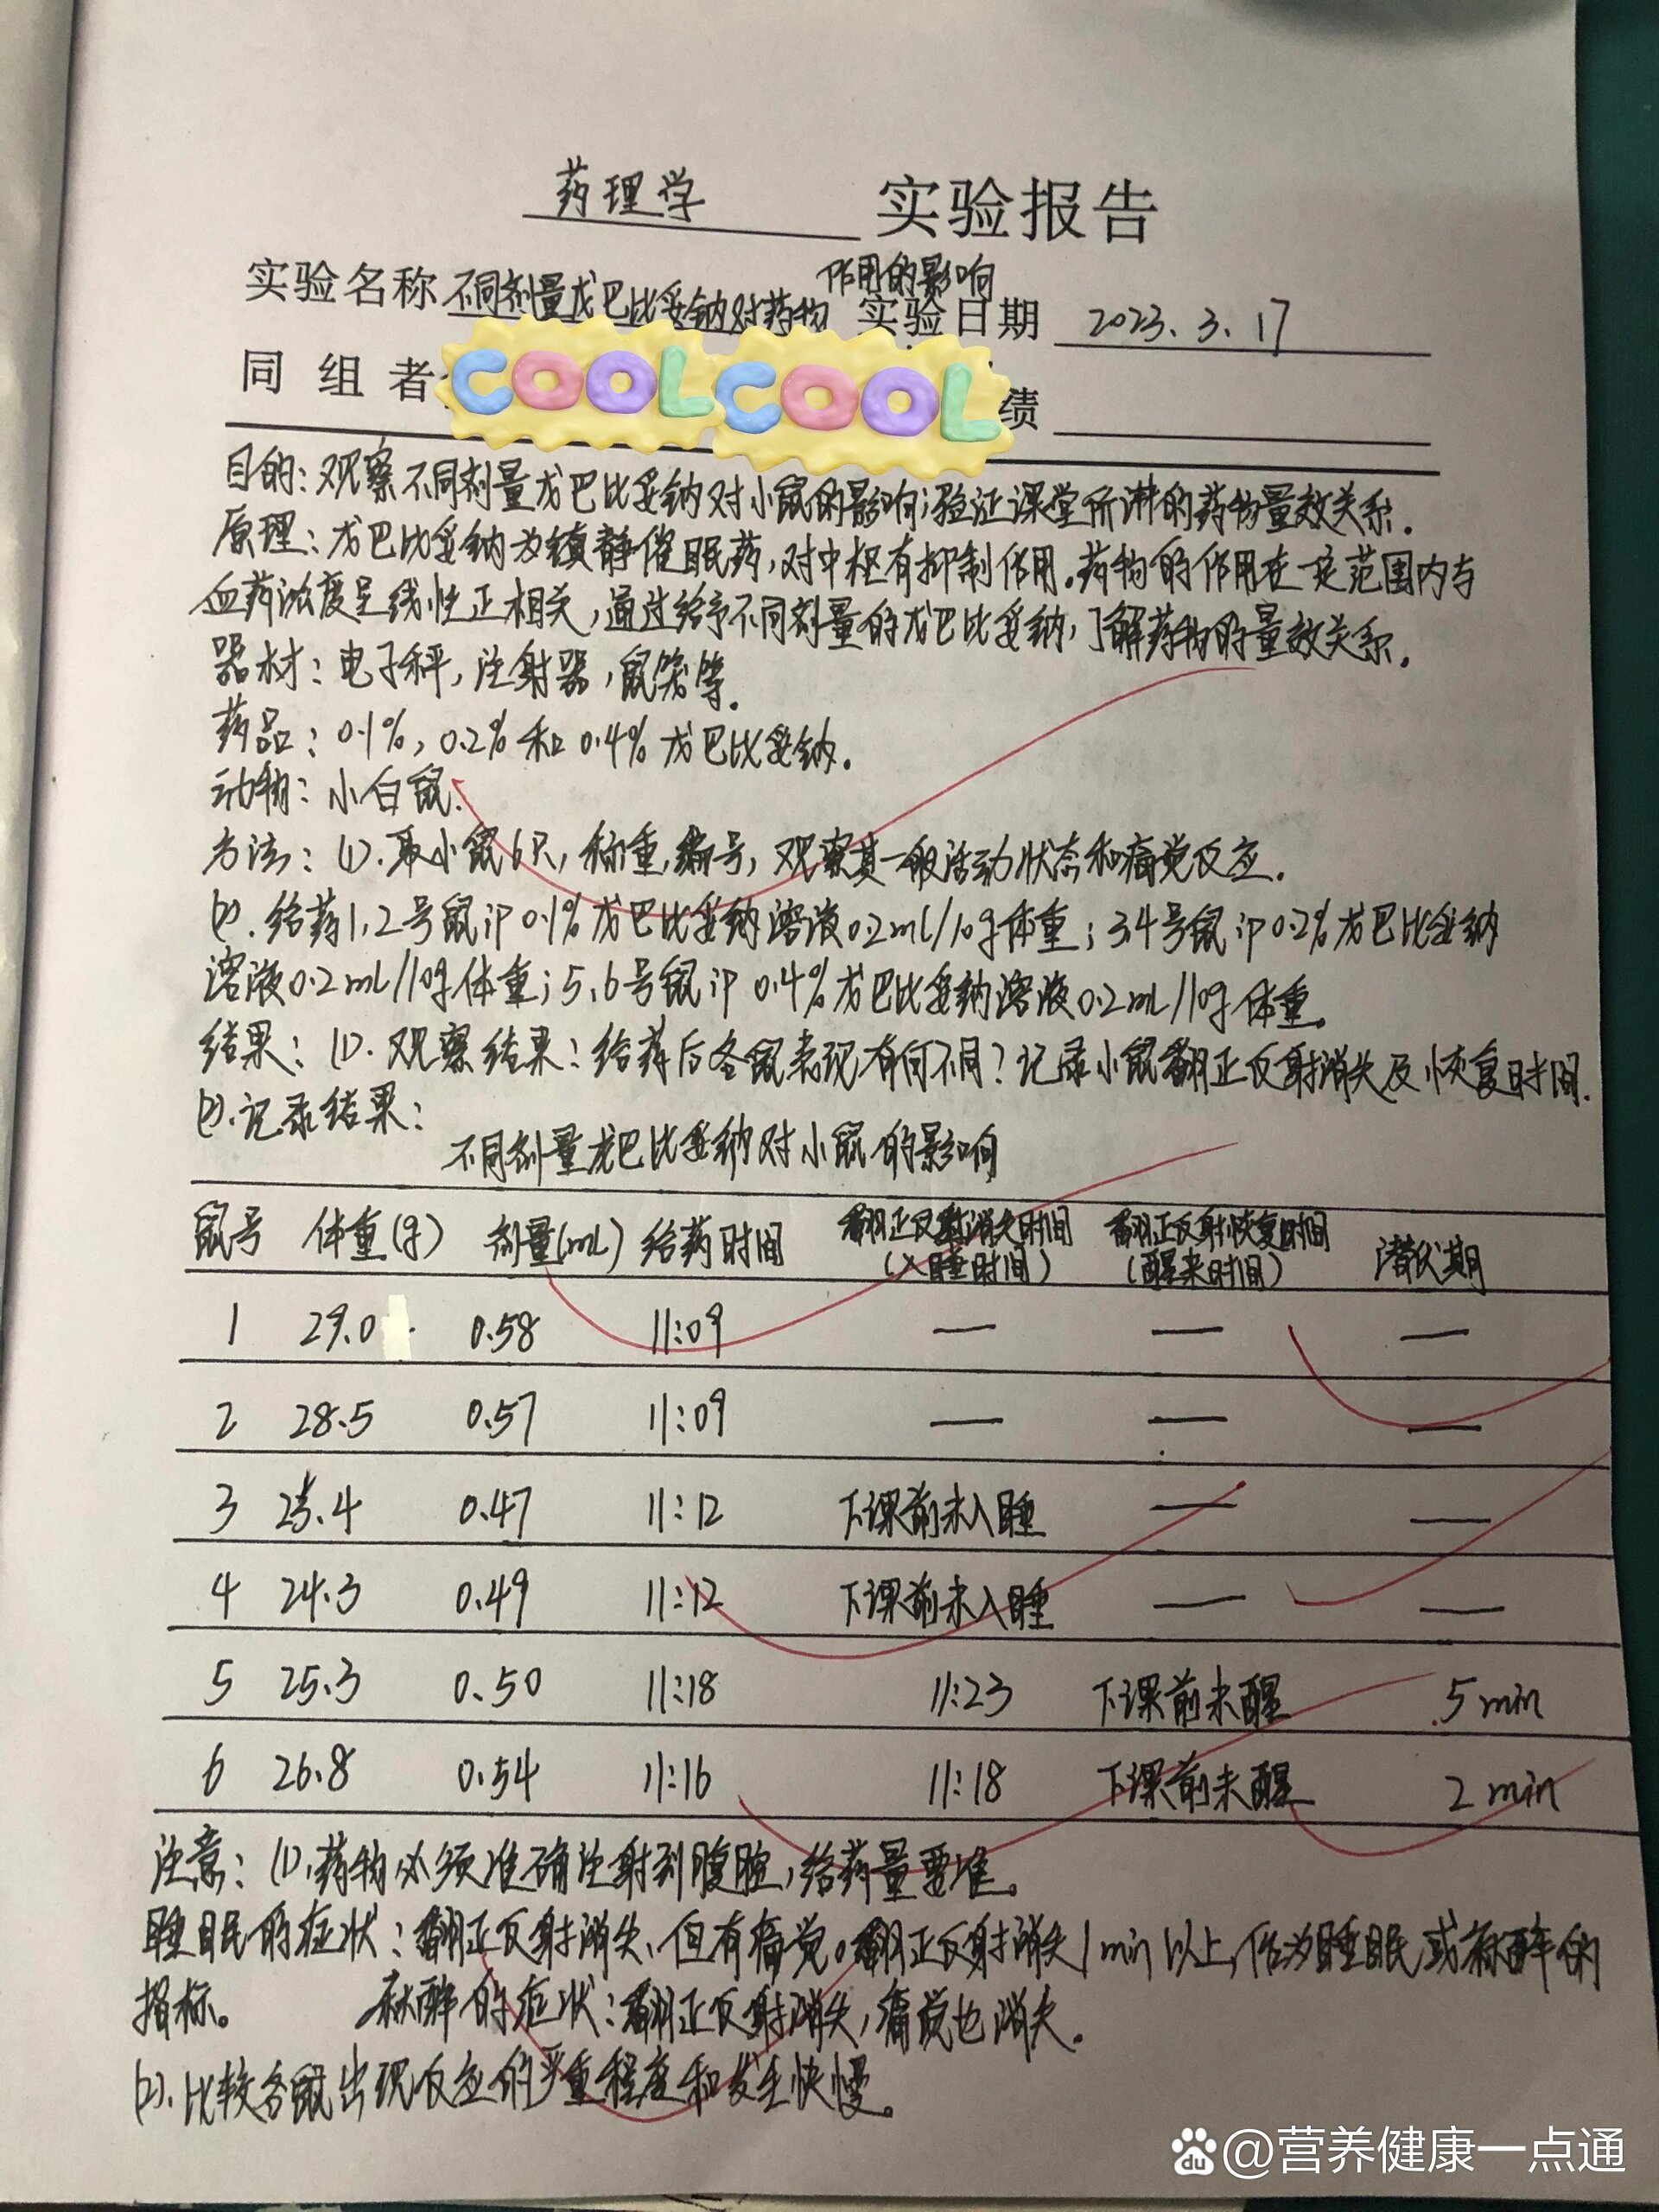 药理学 实验报告
实验名称 不同剂量戊巴比妥钠对药物作用的影响 实验日期 2023.3.17
同组者 COOLCOOL 绩
目的:观察不同剂量戊巴比妥钠对小鼠的影响;验证课堂所讲的药物量效关系.
原理:戊巴比妥钠为镇静催眠药,对中枢有抑制作用。药物的作用在一定范围内与
血药浓度呈线性正相关,通过给予不同剂量的戊巴比妥钠,了解药物的量效关系.
器材:电子秤,注射器,鼠笼等.
药品:0.1%,0.2%和0.4%戊巴比妥钠.
动物:小白鼠.
方法:(1).取小鼠6只,称重,编号,观察其一般活动状态和痛觉反应.
(2).给药1,2号鼠ip 0.1%戊巴比妥钠溶液0.2mL/10g体重;3.4号鼠ip 0.2%戊巴比妥钠
溶液0.2mL/10g体重;5.6号鼠ip 0.4%戊巴比妥钠溶液0.2mL/10g体重。
结果:(1).观察结果:给药后各鼠表现有何不同?记录小鼠翻正反射消失及恢复时间.
(2).记录结果:
不同剂量戊巴比妥钠对小鼠的影响
鼠号 体重(g) 剂量(mL) 给药时间 翻正反射消失时间(入睡时间) 翻正反射恢复时间(醒来时间) 潜伏期
1 29.0 0.58 11:09 — — —
2 28.5 0.57 11:09 — — —
3 23.4 0.47 11:12 下课前未入睡 — —
4 24.3 0.49 11:12 下课前未入睡 — —
5 25.3 0.50 11:18 11:23 下课前未醒 5 min
6 26.8 0.54 11:16 11:18 下课前未醒 2 min
注意:(1).药物必须准确注射到腹腔,给药量要准。
睡眠的症状:翻正反射消失、但有痛觉。翻正反射消失1min以上,作为睡眠或麻醉的
指标。 麻醉的症状:翻正反射消失,痛觉也消失.
(2).比较各鼠出现反应的严重程度和发生快慢。
du @营养健康一点通